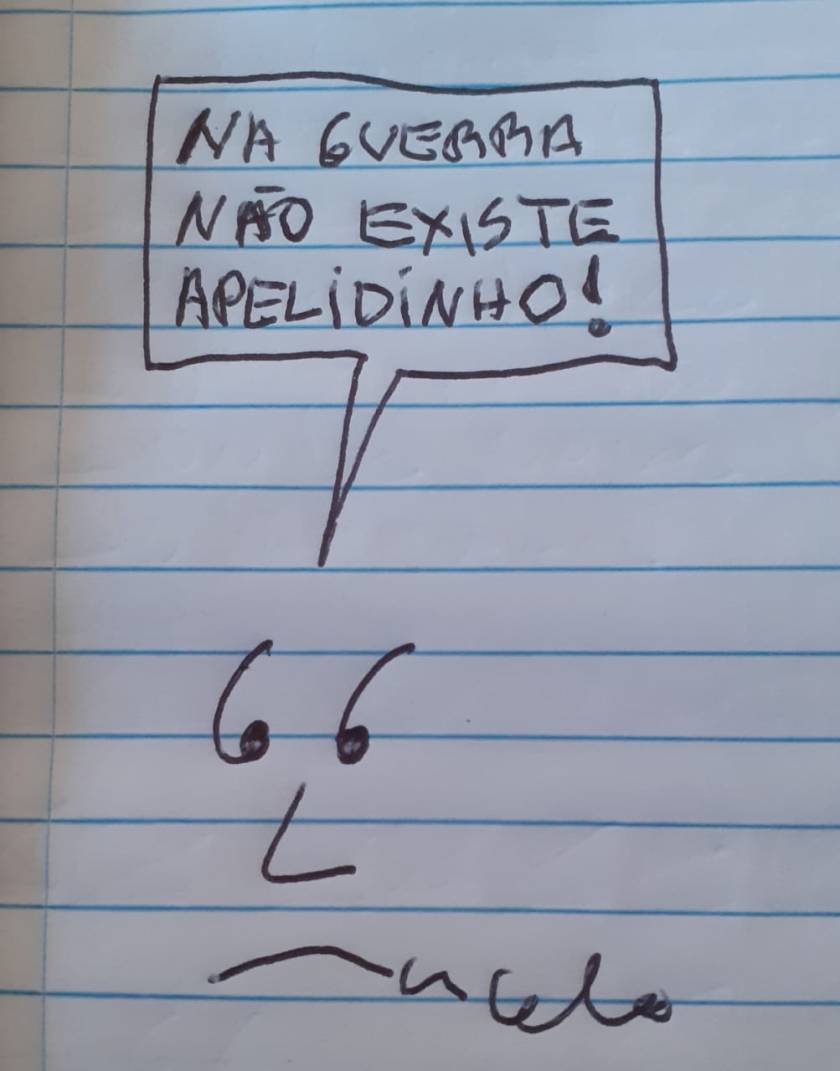 NA GUERRA
NÃO EXISTE
APELIDINHO!